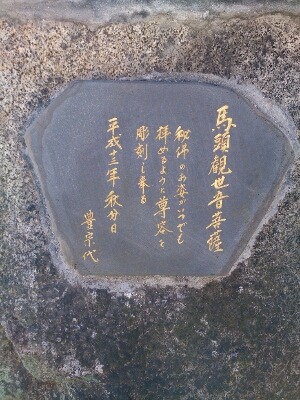 馬頭観世音菩薩
秘佛のお姿がいつでも
拝めるように尊容を
彫刻し奉る
平成十三年秋分日
豊宗代